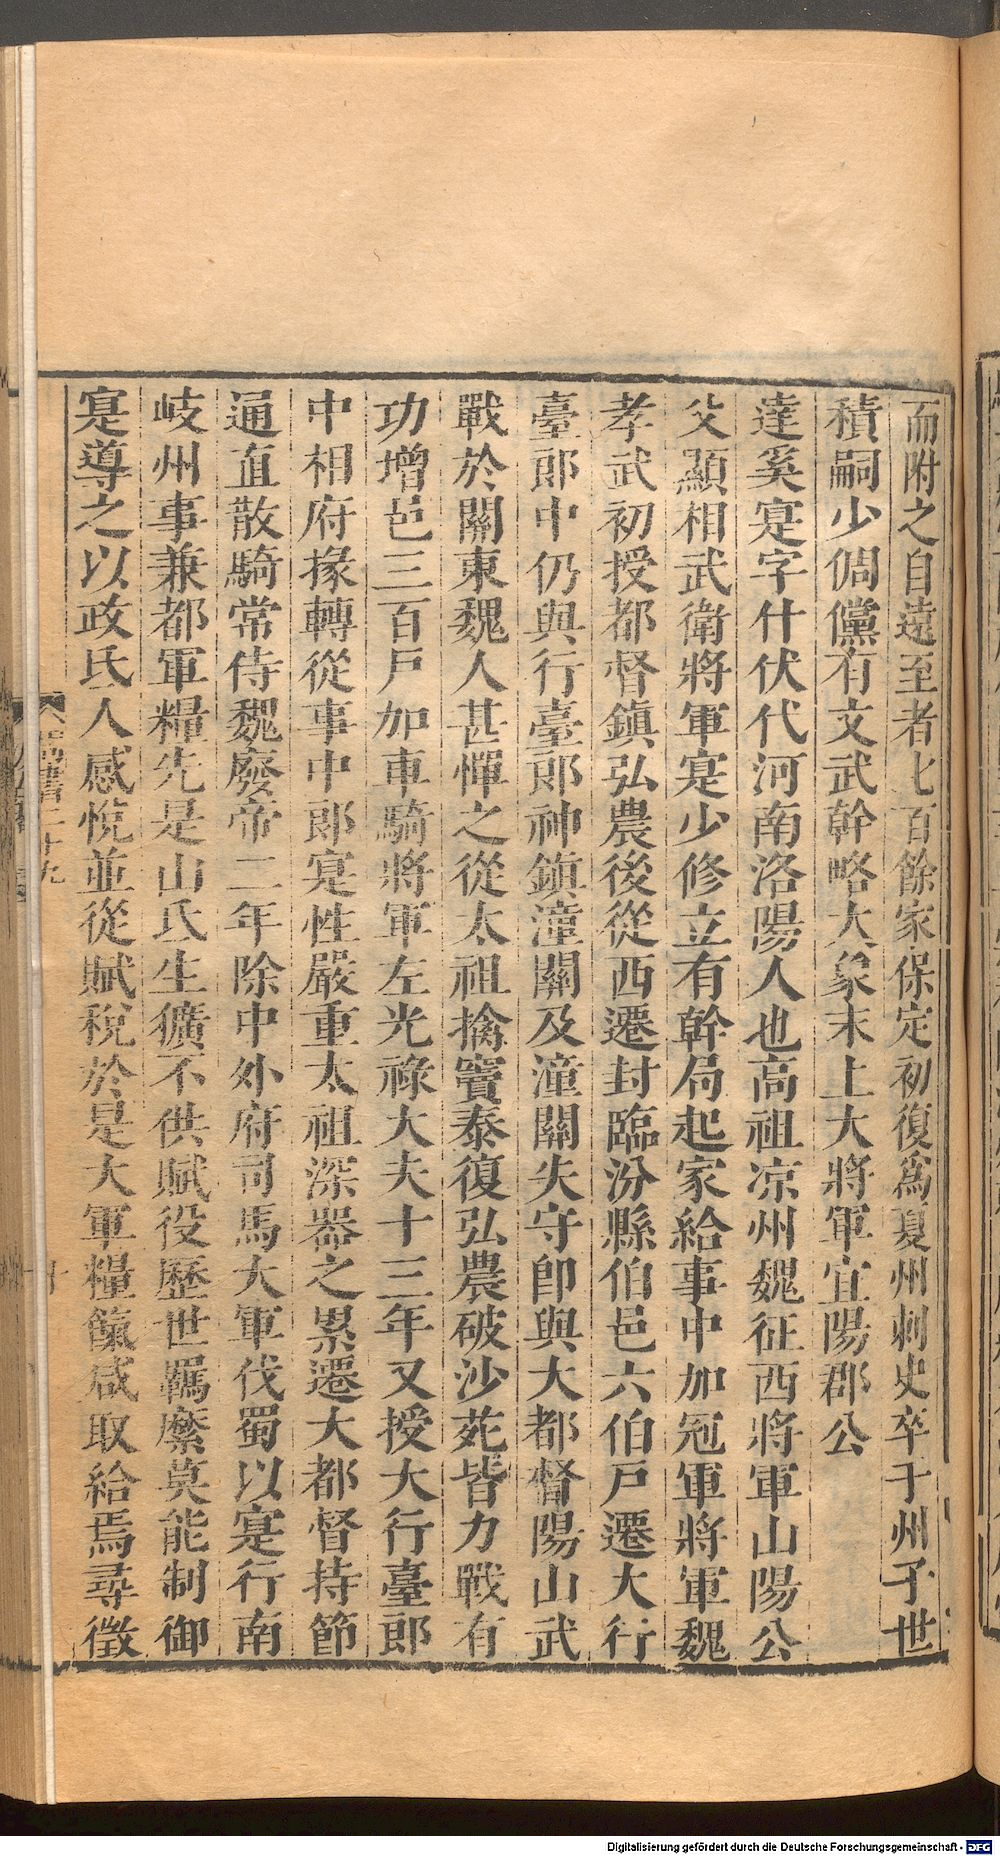 而附之自遠至者七百餘家保定初復爲夏州刺史卒于州子世
積嗣少倜儻有文武幹略大象末上大將軍宜陽郡公
達奚寔字什伏代河南洛陽人也高祖凉州魏征西將軍山陽公
父顯相武衛將軍寔少修立有幹局起家給事中加冠軍將軍魏
孝武初授都督鎮弘農後從西遷封臨汾縣伯邑六伯戶遷大行
臺郎中仍與行臺郎神鎮潼關及潼關失守卽與大都督陽山武
戰於關東魏人甚憚之從太祖擒竇泰復弘農破沙苑皆力戰有
功增邑三百戶加車騎將軍左光祿大夫十三年又授大行臺郎
中相府掾轉從事中郎寔性嚴重太祖深器之累遷大都督持節
通直散騎常侍魏廢帝二年除中外府司馬大軍伐蜀以寔行南
岐州事兼都軍糧先是山氐生獷不供賦役歷世羈縻莫能制御
寔導之以政氐人感悅並從賦稅於是大軍糧餼咸取給焉尋徵
Digitalisierung gefördert durch die Deutsche Forschungsgemeinschaft - DFG